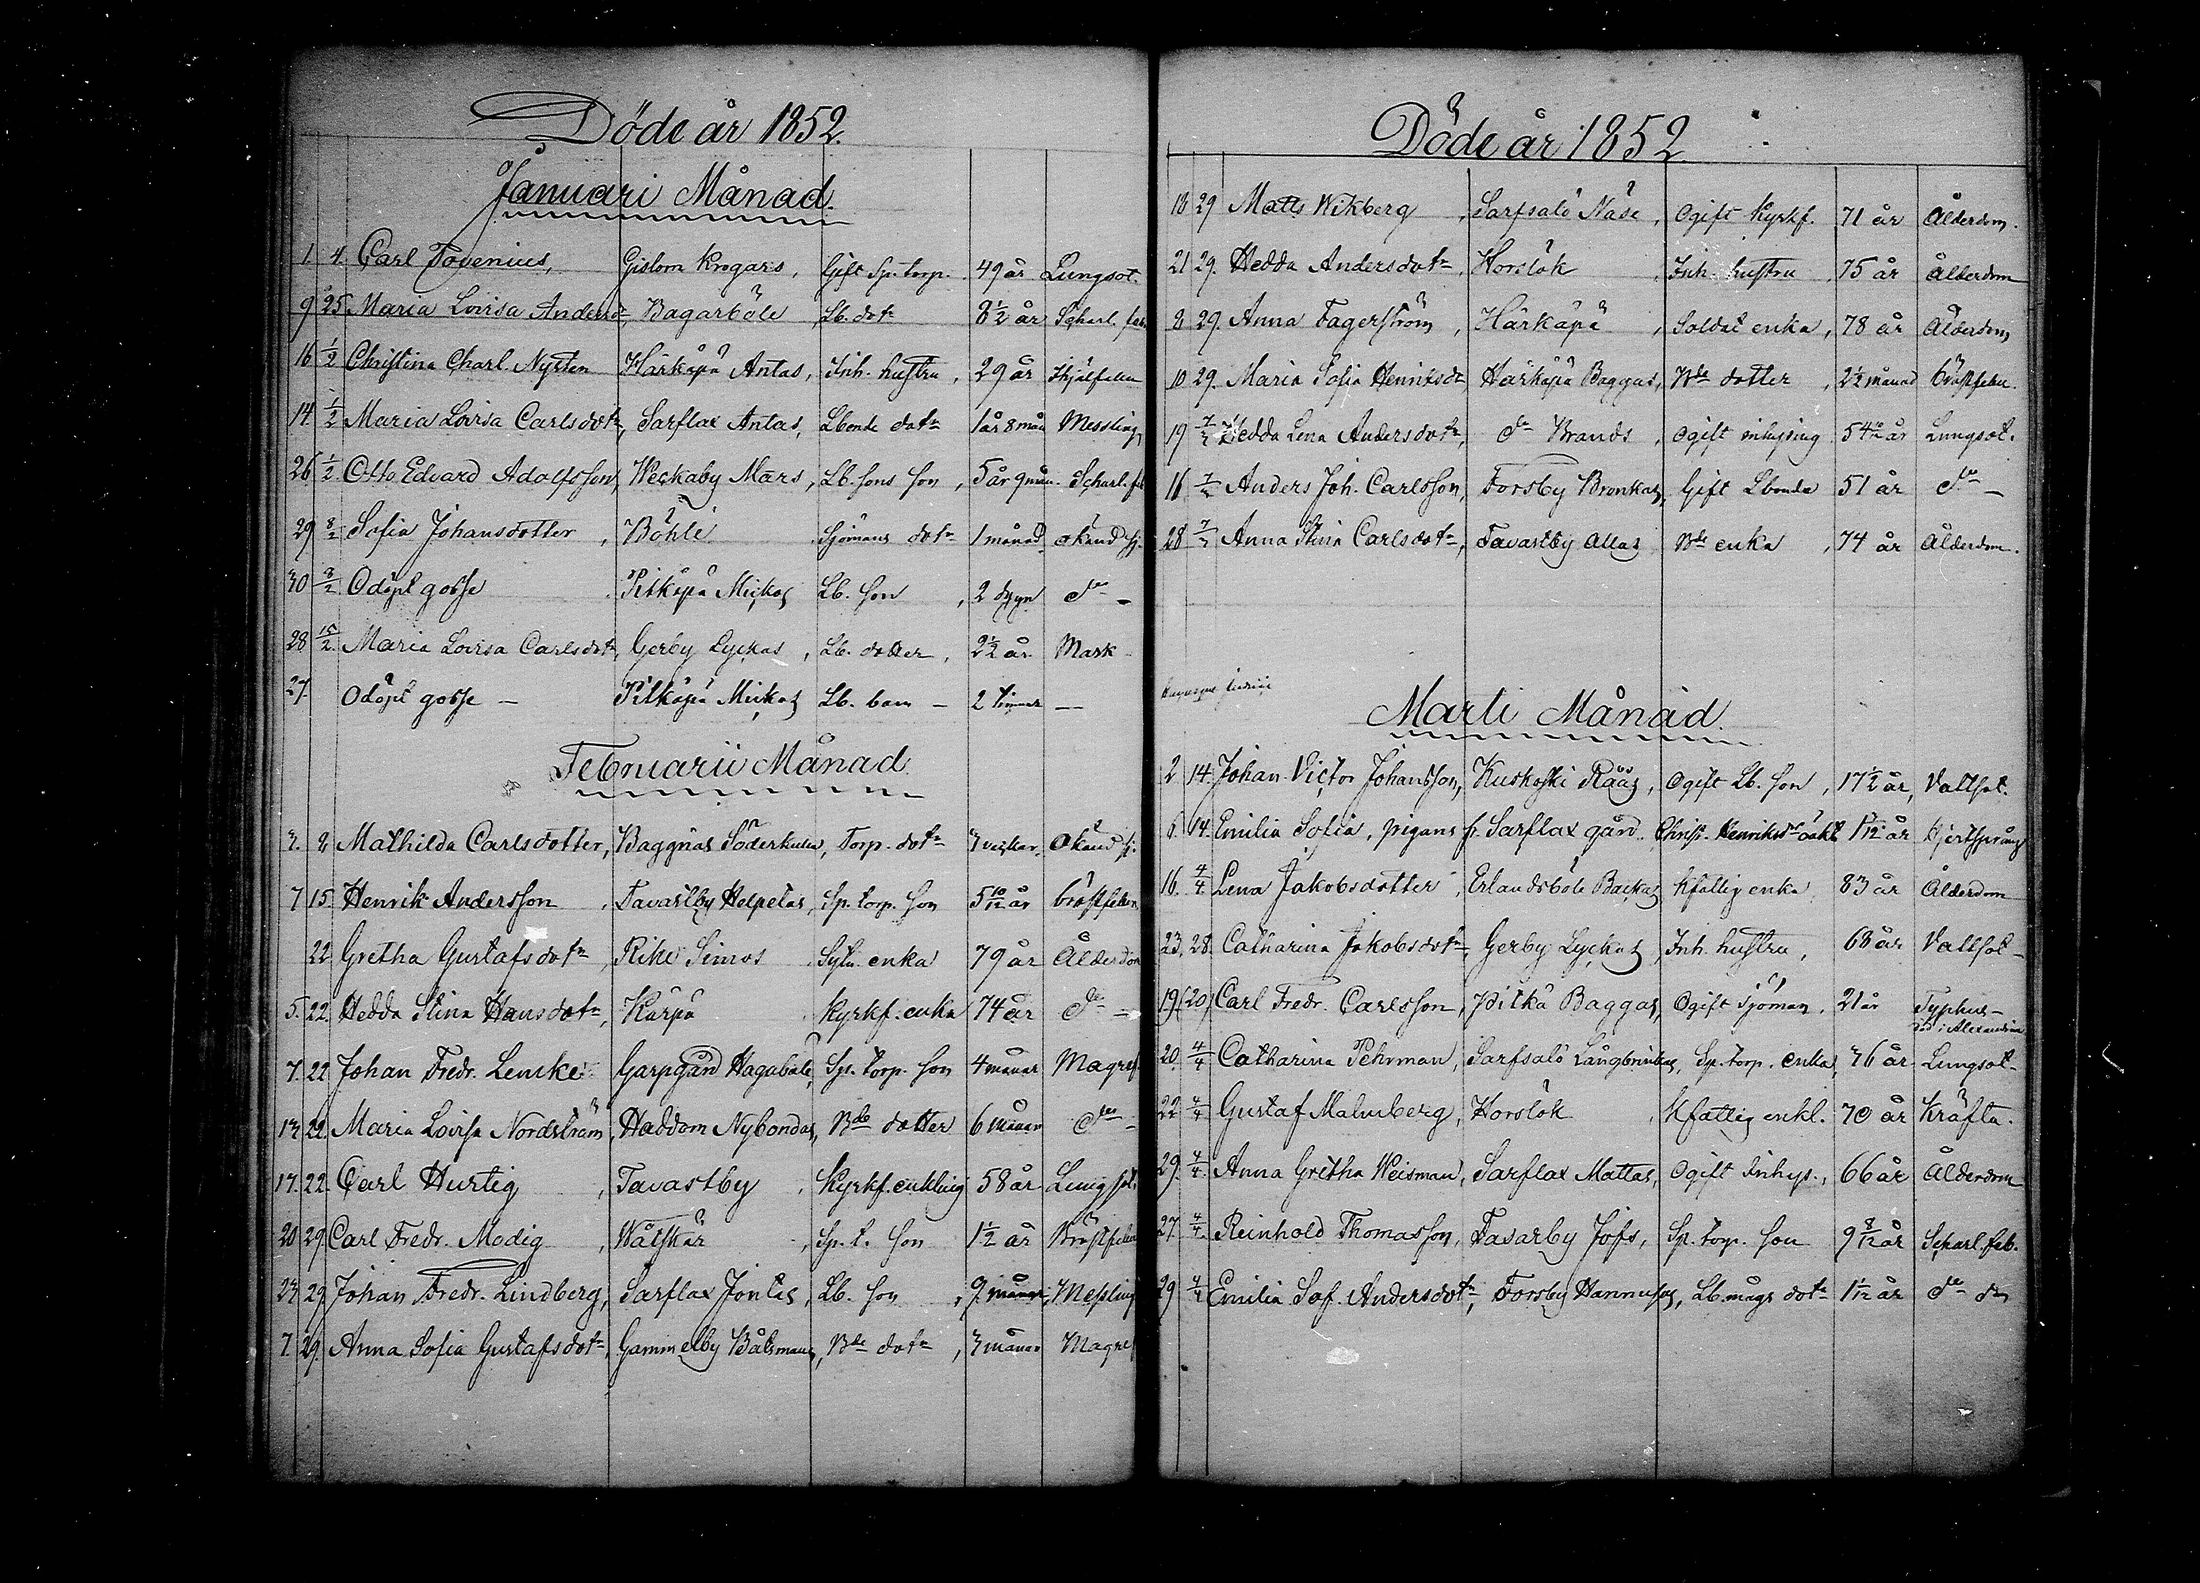 Döde år 1852.
Januari Månad.
1 4. Carl Tovenius, Gislom Krogars, Gift Sp. torp. 49 år Lungsot.
9 25 Maria Lovisa Andersd:r, Bagarböle Lb. dot:r 8 1/2 år Scharl. feb.
16 1/2 Christina Charl. Nysten Härkäpä Antas, Inh. hustru, 29 år Ihjälfallen
14 1/2 Maria Lovisa Carlsdot:r, Sarflax Antas, Lbonde dot:r 1 år 8 mån Messling
26 1/2 Otto Edvard Adolfsson, Weckaby Mårs, Lb. sons son, 5 år 9 mån. Scharl. feb
29 8/2 Sofia Johansdotter, Böhle Sjömans dot:r 1 månad okänd sj.
30 8/2 Odöpt gosse Pitkäpä Mickos Lb. son, 2 dygn d:o –
28 15/2 Maria Lovisa Carlsdot:r, Gerby Lyckas, Lb. dotter, 2 1/2 år Mask
27. Odöpt gosse – Pitkäpä Mickos Lb. barn – 2 timmar —
Februarii Månad
3. 8 Mathilda Carlsdotter, Baggnäs Söderkulla, Torp. dot:r 3 veckor, Okänd sj.
7 15. Henrik Andersson, Tavastby Helpetas, Sp. torp. son 5 10/12 år bröstfeber
22 Gretha Gustafsdot:r, Rike Simos Sytn. enka 79 år Ålderdom
5. 22. Hedda Stina Hansdot:r, Kärpä Kyrkf. enka 74 år d:o –
7. 22 Johan Fredr. Lemke Garpgård Hagaböle, Sp. torp. son 4 månar Magref
13 22. Maria Lovisa Nordström, Haddom Nybondas, B:de dotter 6 månar d:o –
17. 22. Carl Hurtig, Tavastby, Kyrkf. enkling 58 år Lungsot.
20 29. Carl Fredr. Modig, Wåtskär, Sp. t. son 1 1/2 år Bröstfeber
23 29 Johan Fredr. Lindberg, Sarflax Jontas, Lb. son, 9 månar, Messling
7. 29. Anna Sofia Gustafsdot:r, Gammelby Båtsmans, B:de dot:r, 3 månar Magref
Döde år 1852
18 29 Matts Wikberg, Sarfsalö Näse, Ogift Kyrkf. 71 år Ålderdom.
21 29. Hedda Andersdot:r, Horslök, Inh. hustru, 75 år Ålderdom
8 29. Anna Fagerström, Härkäpä, Soldat enka, 78 år Ålderdom
10 29. Maria Sofia Henriksd:r Härkäpä Baggas, B:de dotter, 2 1/2 månad bröstfeber.
19 7/3 Hedda Lena Andersdot:r, d:o Brands, Ogift inhysing 54 år Lungsot.
16 7/3 Anders Joh. Carlsson, Forsby Bronkas, Gift Lbonde 51 år d:o –
28 7/3 Anna Stina Carlsdot:r, Tavastby Allas B:de enka, 74 år Ålderdom.
Marti Månad
2 14. Johan Victor Johansson, Kuskoski Rååz, Ogift Lb. son, 17 1/2 år, Vattsot.
6. 14. Emilia Sofia, pigans fr. Sarflax gård Christ. Henriksd:r oäkt 1 1/12 år Hjertsprång
16. 4/4 Lena Jakobsdotter, Erlandsböle Backas, Kfattig enka 83 år Ålderdom
23. 28. Catharina Jakobsdot:r Gerby Lyckas, Inh. hustru, 68 år Vattsot –
19 (20) Carl Fredr. Carlsson, Pitkä Baggas, Ogift Sjöman, 21 år Typhus –
död i Alexandria
20. 4/4 Catharina Pehrman, Sarfsalö Långbrinkas, Sp. torp. enka, 76 år Lungsot –
22 4/4 Gustaf Malmberg, Horslök, Kfattig enkl. 70 år Kräfta.
29. 4/4 Anna Gretha Weisman, Sarflax Mattas, Ogift Inhys., 66 år Ålderdom
27. 4/4 Reinhold Thomasson, Tavarby Jofs, Sp. torp. son 9 8/12 år Scharl. feb.
29 4/4 Emilia Sof. Andersdot:r, Forsby Hannusas, Lb. mågs dot:r 1 1/12 år d:o d:o